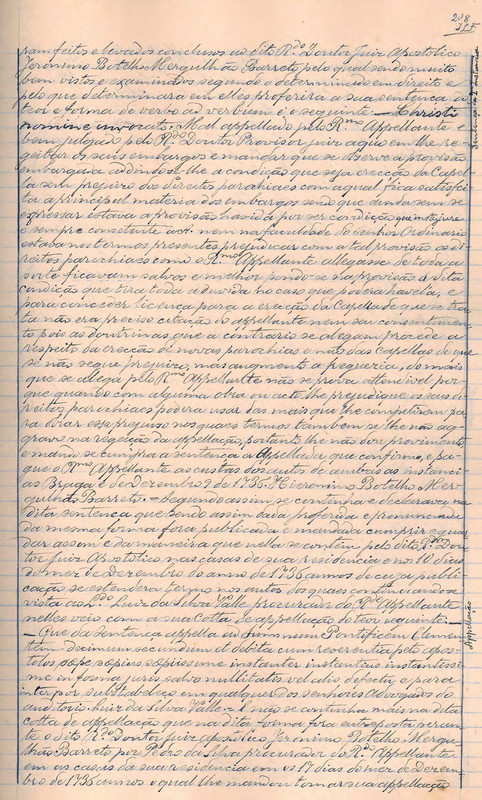 208
sam feitos e levados conclusos ao dito R.do Doutor Juiz Apostolico
Jeronimo Botelho Mergulhão Barreto pelo qual sendo muito
bem vistos e examinados segundo o determinado em direito e
pelo que determinara em elles proferira a sua sentença de
teor e forma de verbo ad verbum é o seguinte: — Christi
nomine invocato. Mal appellado pelo R.mo Appellante e
bem julgado pelo R.do Doutor Provisor juiz a quo em lhe re-
geitar os seus embargos e mandar que se observe a provisão
embargada addindo-se-lhe a condição que seja erecção da Capel-
la sem prejuizo dos direitos parochiaes com a qual fica satisfei-
ta a principal materia dos embargos sendo que ainda sem se
expressar estava a provisão havida por ser condição que
e sempre consetente nem na faculdade do Senhor Ordinario
estaba nos termos presentes prejudicar com a tal provisão os di-
reitos parochiaes como o R.mo Appellante allega se de toda a
sorte ficavam salvos e melhor pondo-se na provisão a dita
condição que tira toda a duvida no caso que podera havel-a, e
para conceder licença para a erecção da Capella de que se tra-
ta não era preciso citação do appellante nem seu consentimen-
to pois as doutrinas que a contrario se alegam procede a
respeito da erecção de novas parochias e não das Capellas de que
se não segue prejuizo, mas augmento a freguezia, do mais
que se alega pelo R.mo Appellante não se prova attendivel por-
que quando com algima obra ou acto lhe prejudique os seus di-
reitos parochiaes podera usar dos mais que lhe competirem pa-
ra tirar esse prejuizo nos quaes termos tambem se lhe não ag-
gravo na regeição da appellação, portanto lhe não dou provimento
e mando se cumpra a sentença a Appellada que confirmo, e pa-
gue o R.mo Appellante as custas dos autos de ambas as instanci-
as Braga e de Dezembro 9 de 1735. Hieronimo Botelho Mer-
gulhão Barreto. = Segundo assim se continha e declarava na
dita sentença que sendo assim dada proferida e pronunciada
da mesma forma fora publicada e mandada cumprir e guar-
dar assim e da maneira que nella se contêm pelo dito R.do Dou-
tor Juiz Apostolico nas casas de sua residencia e no 10 dias
do mez de Dezembro do anno de 1735 annos de cuja publi-
cação se estendera termo nos autos dos quaes continuando-se
vista ao L.do Luiz da Silva Valle procurador do R.mo Appellante
nelles veio com a sua Cotta de appellação do teor seguinte: —
— Que da Sentença appella ad Summum Pontificem Clemen-
tem decimum secundum el debita cum reverentia pelos apos-
tolos sepe sepius sepiissime instanter instantius instantissi-
me in forma juris, salvo nullitatis vel alio defectu, e para
inter por substabeleço em qualquer dos senhores Advogados do
auditorio. Luiz da Silva Valle. = E não se continha mais na dita
cotta de appellação que na dita forma fora enterposta peran-
te o dito R.do Doutor juiz apostolico Jeronimo Botelho Mergu-
lhão Barreto por Pedro da Silva procurador do R.do Appellante
em as casas da sua residencia em os 17 dias do mez de Dezem-
bro de 1735 annos o qual lhe mandou tomar sua appellação
Sentença da 2.ª instancia
Appellação